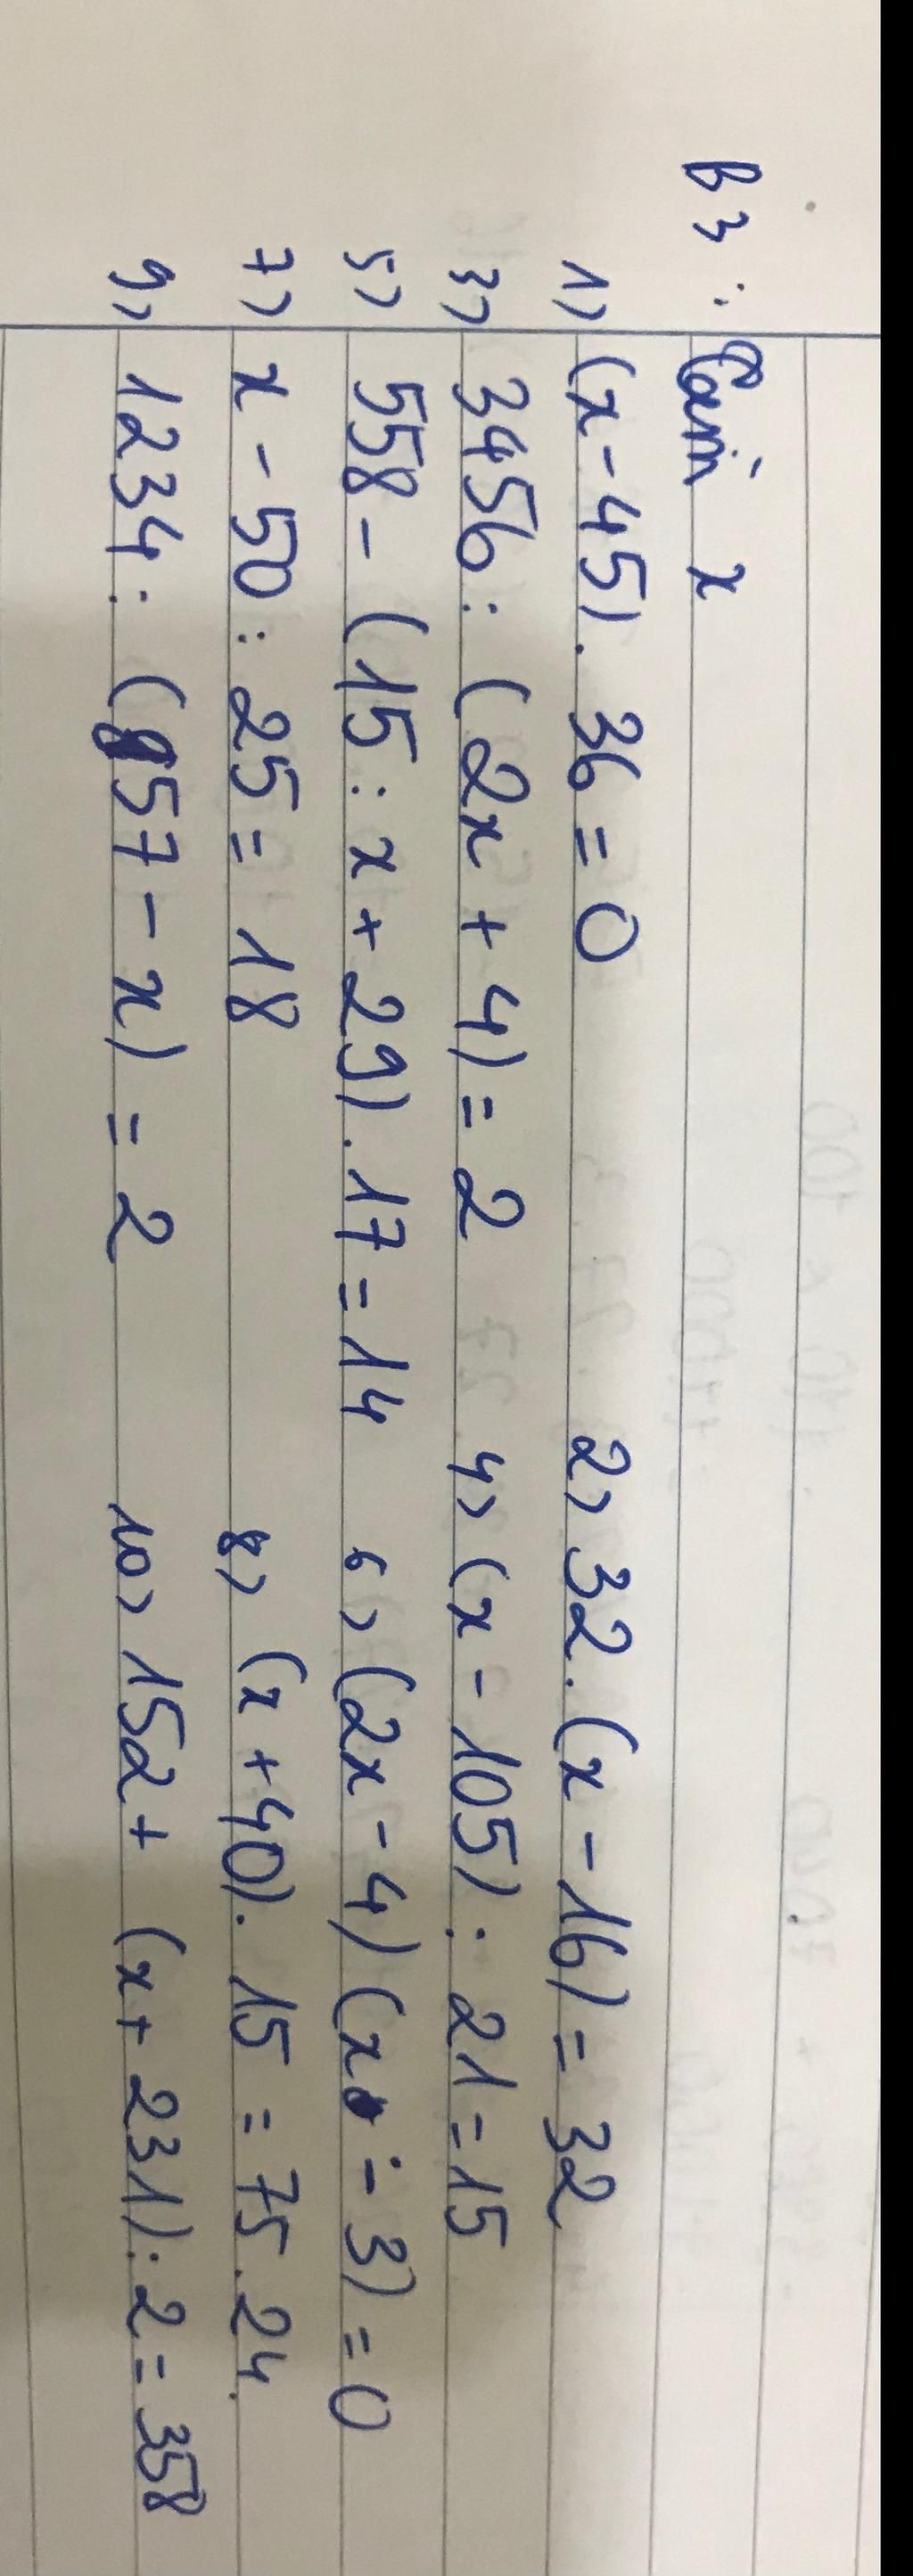 B3: Tìm x
1) (x-45). 36 = 0 2) 32. (x - 16) = 32
3) 3456 : (2x + 4) = 2 4) (x - 105) : 21 = 15
5) 558 - (15 : x + 29). 17 = 14 6) (2x - 4) (x - 3) = 0
7) x - 50 : 25 = 18 8) (x + 40). 15 = 75. 24.
9) 1234 : (57 - x) = 2 10) 152 + (x + 231) : 2 = 358